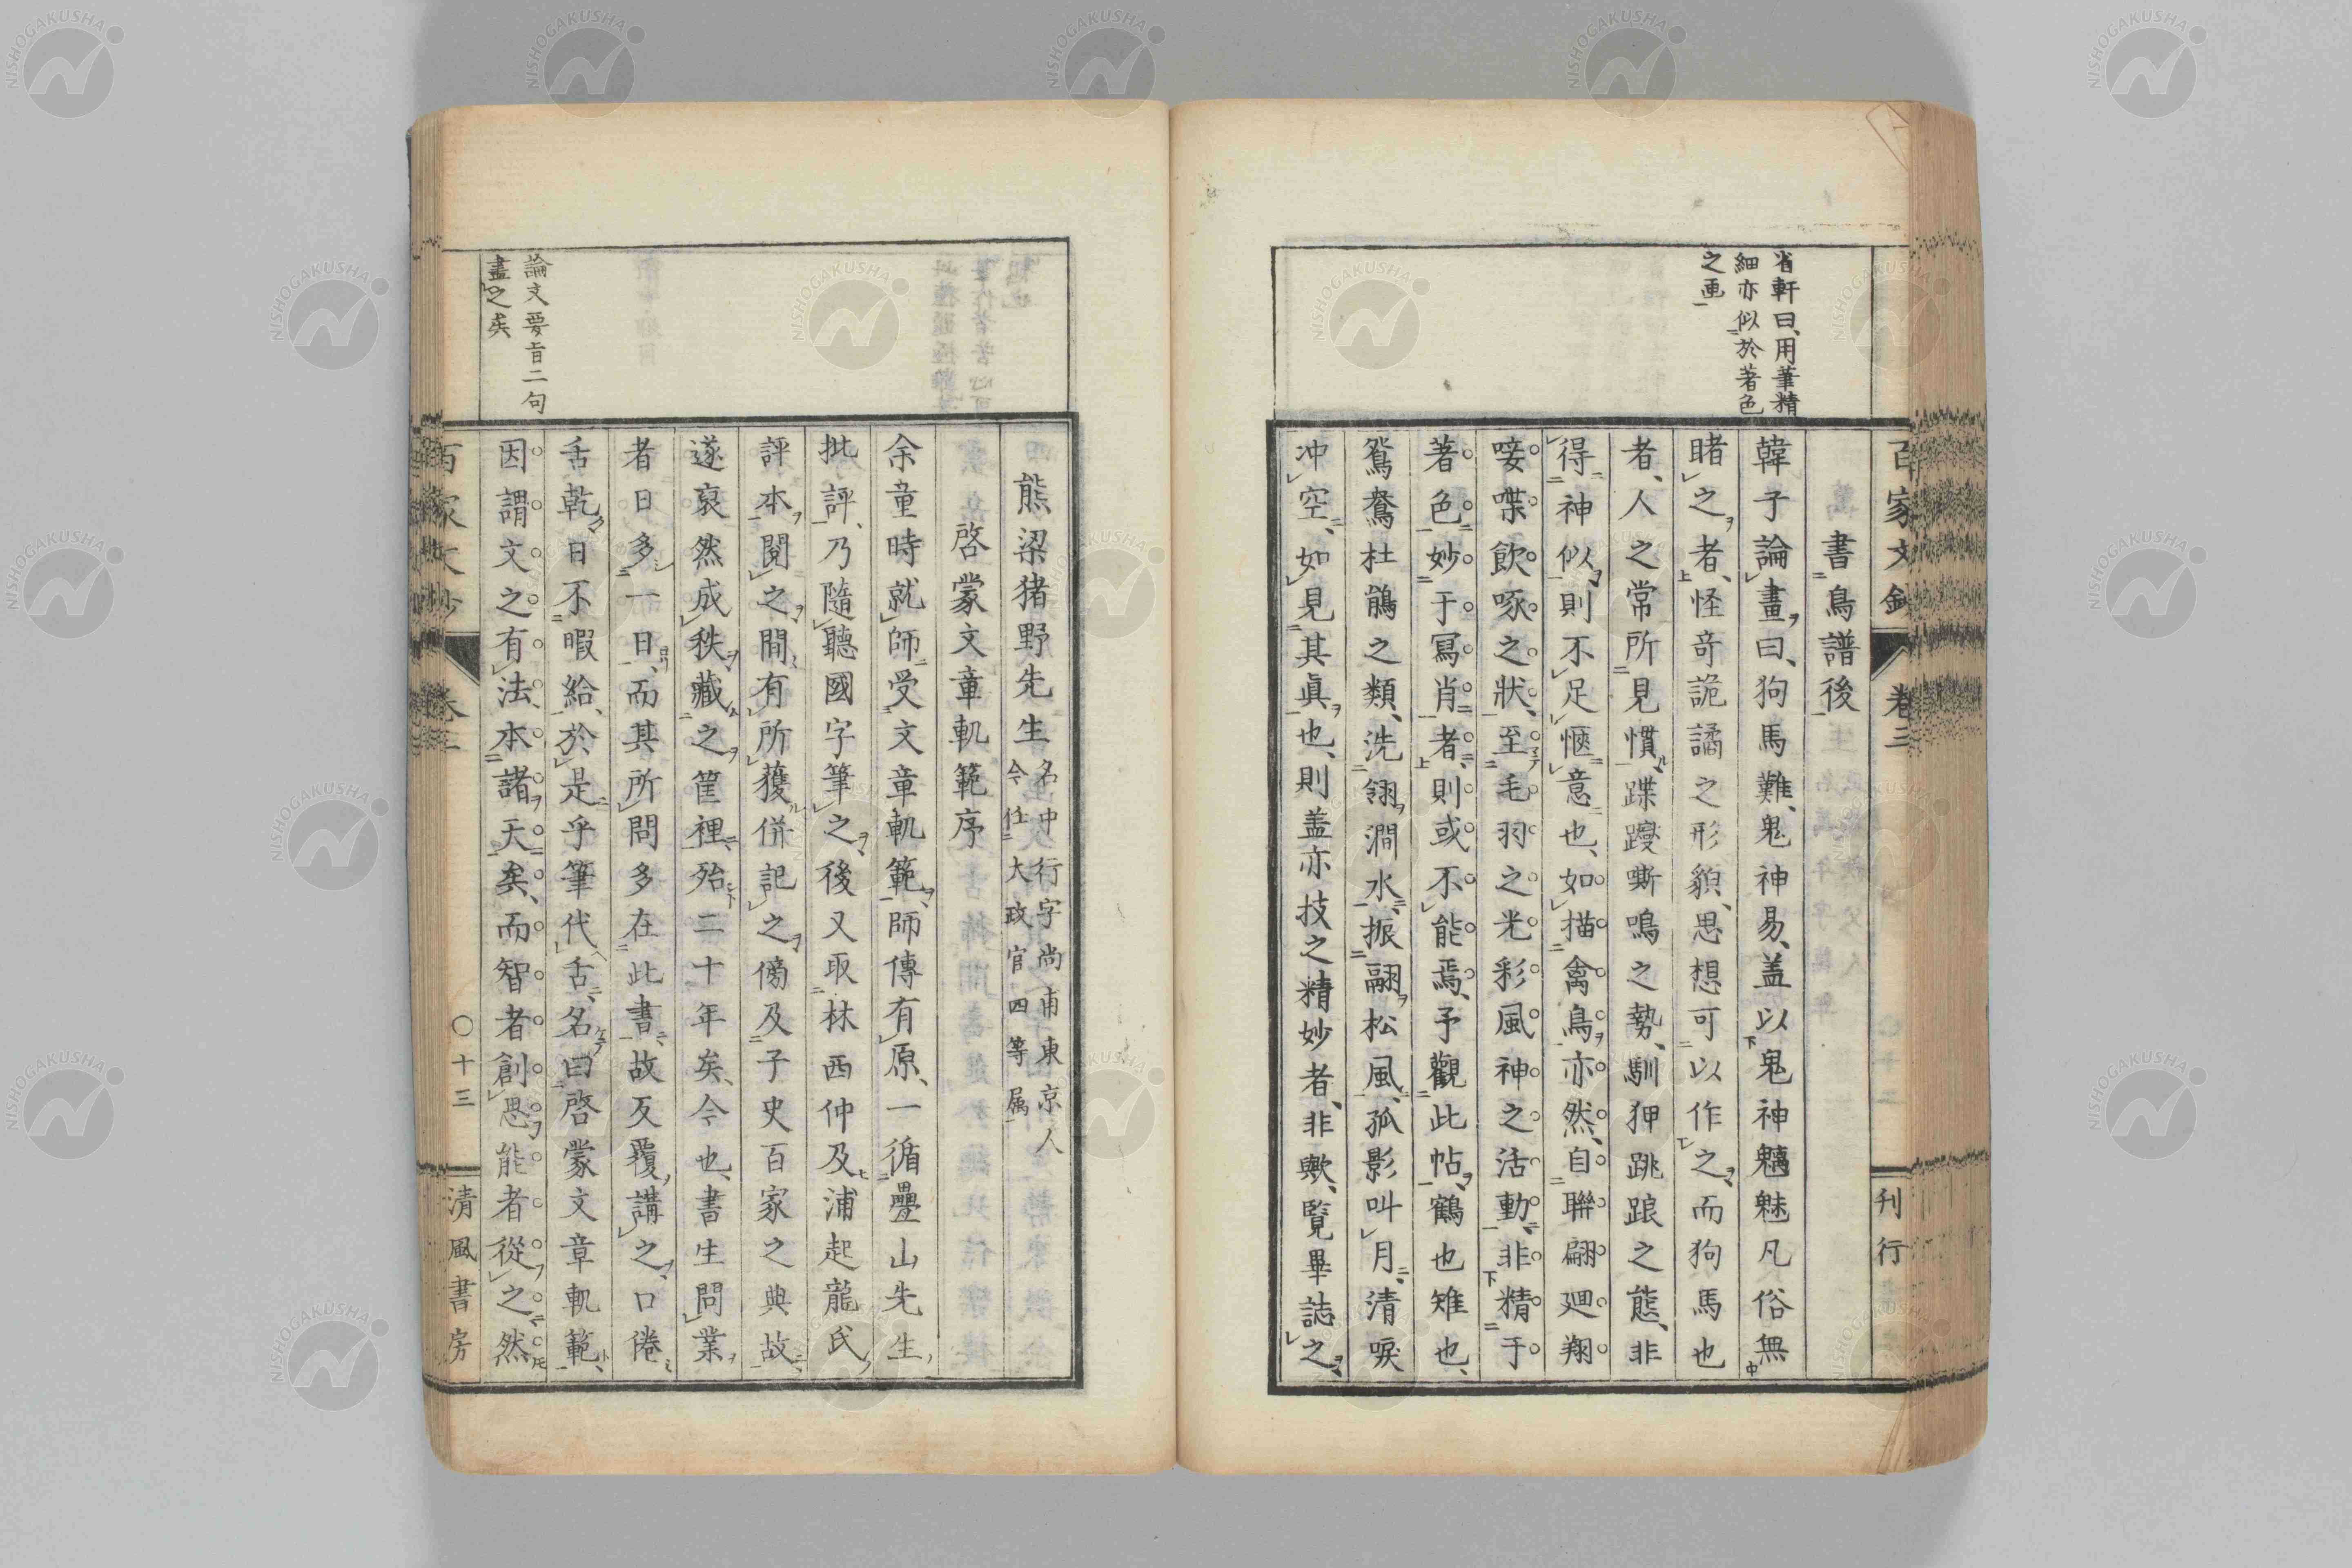 百家文鈔 卷三 刊行
省軒曰、用筆精
細亦似於著色
之画
書鳥譜後
韓子論畫曰、狗馬難、鬼神易、盖以鬼神魑魅凡俗無
睹之者、怪奇詭譎之形貌、思想可以作之、而狗馬也
者、人之常所見慣、蹀躞嘶鳴之勢、馴狎跳踉之態、非
得神似、則不足愜意也、如描禽鳥亦然、自聯翩廻翔
唼喋飲啄之狀、至毛羽之光彩風神之活動、非精于
著色妙于冩肖者、則或不能焉、予觀此帖、鶴也雉也、
鴛鴦杜鵑之類、洗翎澗水、振翮松風、孤影叫月、清唳
冲空、如見其眞也、則盖亦技之精妙者、非歟、覧畢誌之、
熊梁猪野先生 名中行字尚甫東京人
今仕大政官四等属
啓蒙文章軌範序
余童時就師受文章軌範、師傳有原、一循疊山先生
批評、乃隨聽國字筆之、後又取林西仲及浦起龍氏
評本閱之、間有所獲併記之、傍及子史百家之典故、
遂裒然成秩、藏之筐裡、殆二十年矣、今也、書生問業
者日多、一日、而其所問多在此書、故反覆講之、口倦
舌乾、日不暇給、於是乎筆代舌、名曰啓蒙文章軌範、
因謂文之有法、本諸天矣、而智者創思能者從之、然
論文要旨二句
盡之矣
百家文鈔 卷三 〇十三 清風書房